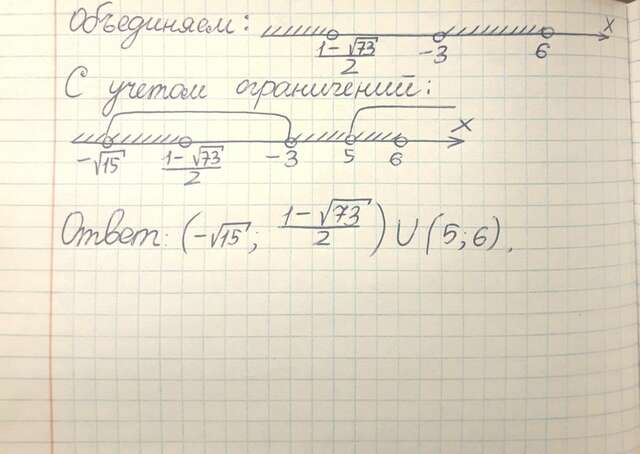 Объединяем:
x
1-√73/2 -3 6
С учетом ограничений:
x
-√15 1-√73/2 -3 5 6
Ответ: (-√15; 1-√73/2) ∪ (5; 6).